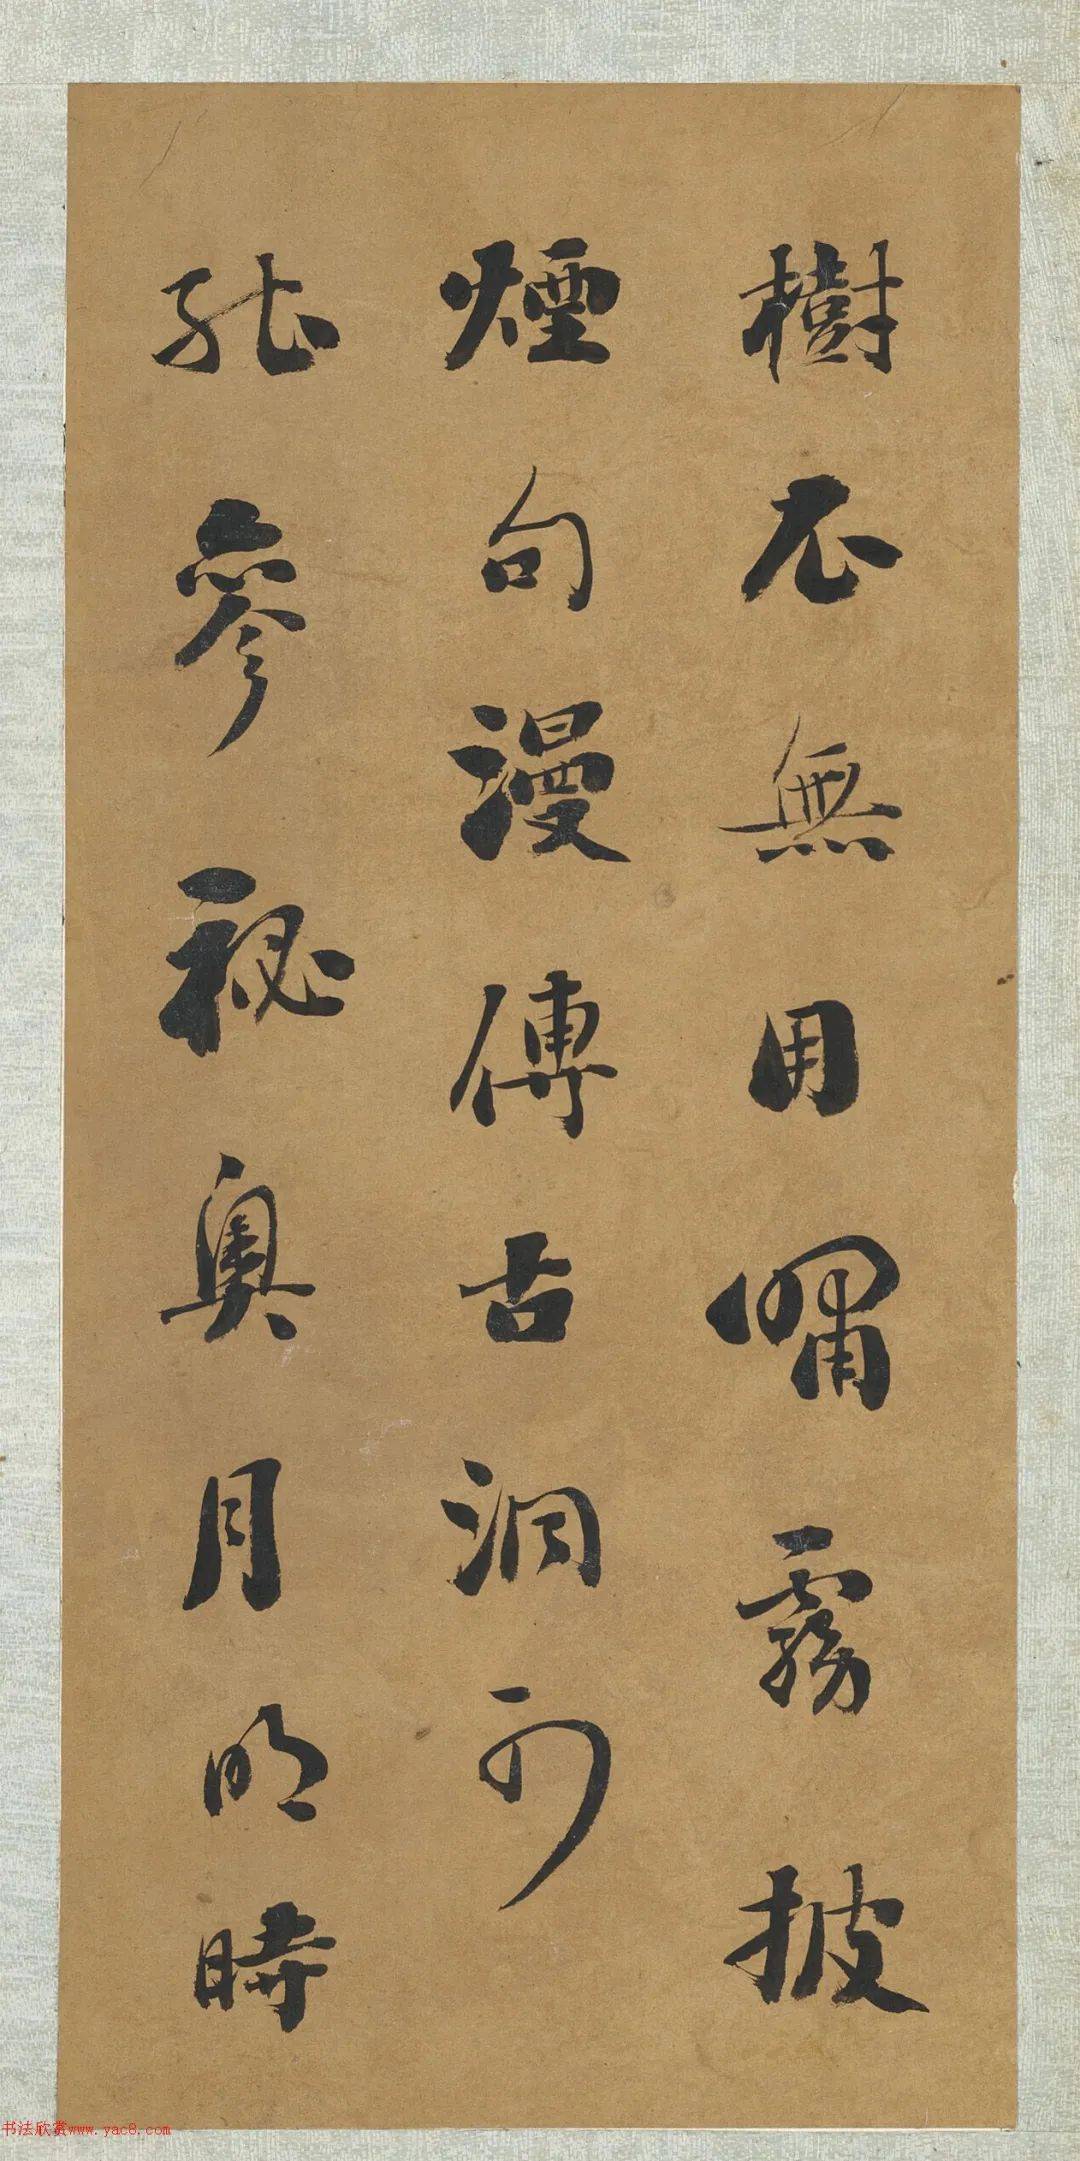 樹不無用嘯霧披
煙句漫傳古洞可
能參祕奧月明時
书法欣赏www.yac8.com